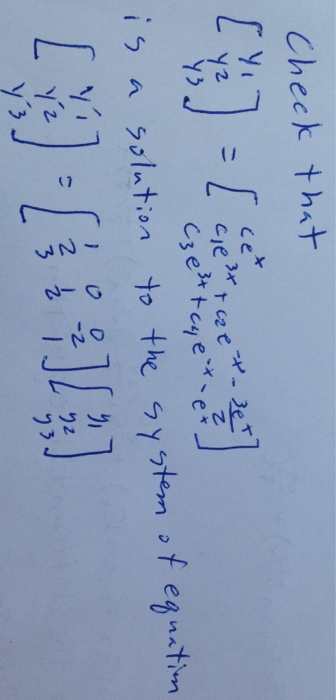 Check that
[ y1 y2 y3 ] = [ ce^x
c1e^3x + c2e^-x - 3e^x/2
c3e^3x + c4e^-x - e^x ]
is a solution to the system of equation
[ y'1 y'2 y'3 ] = [ 1 0 0
2 1 -2
3 2 1 ] [ y1 y2 y3 ]